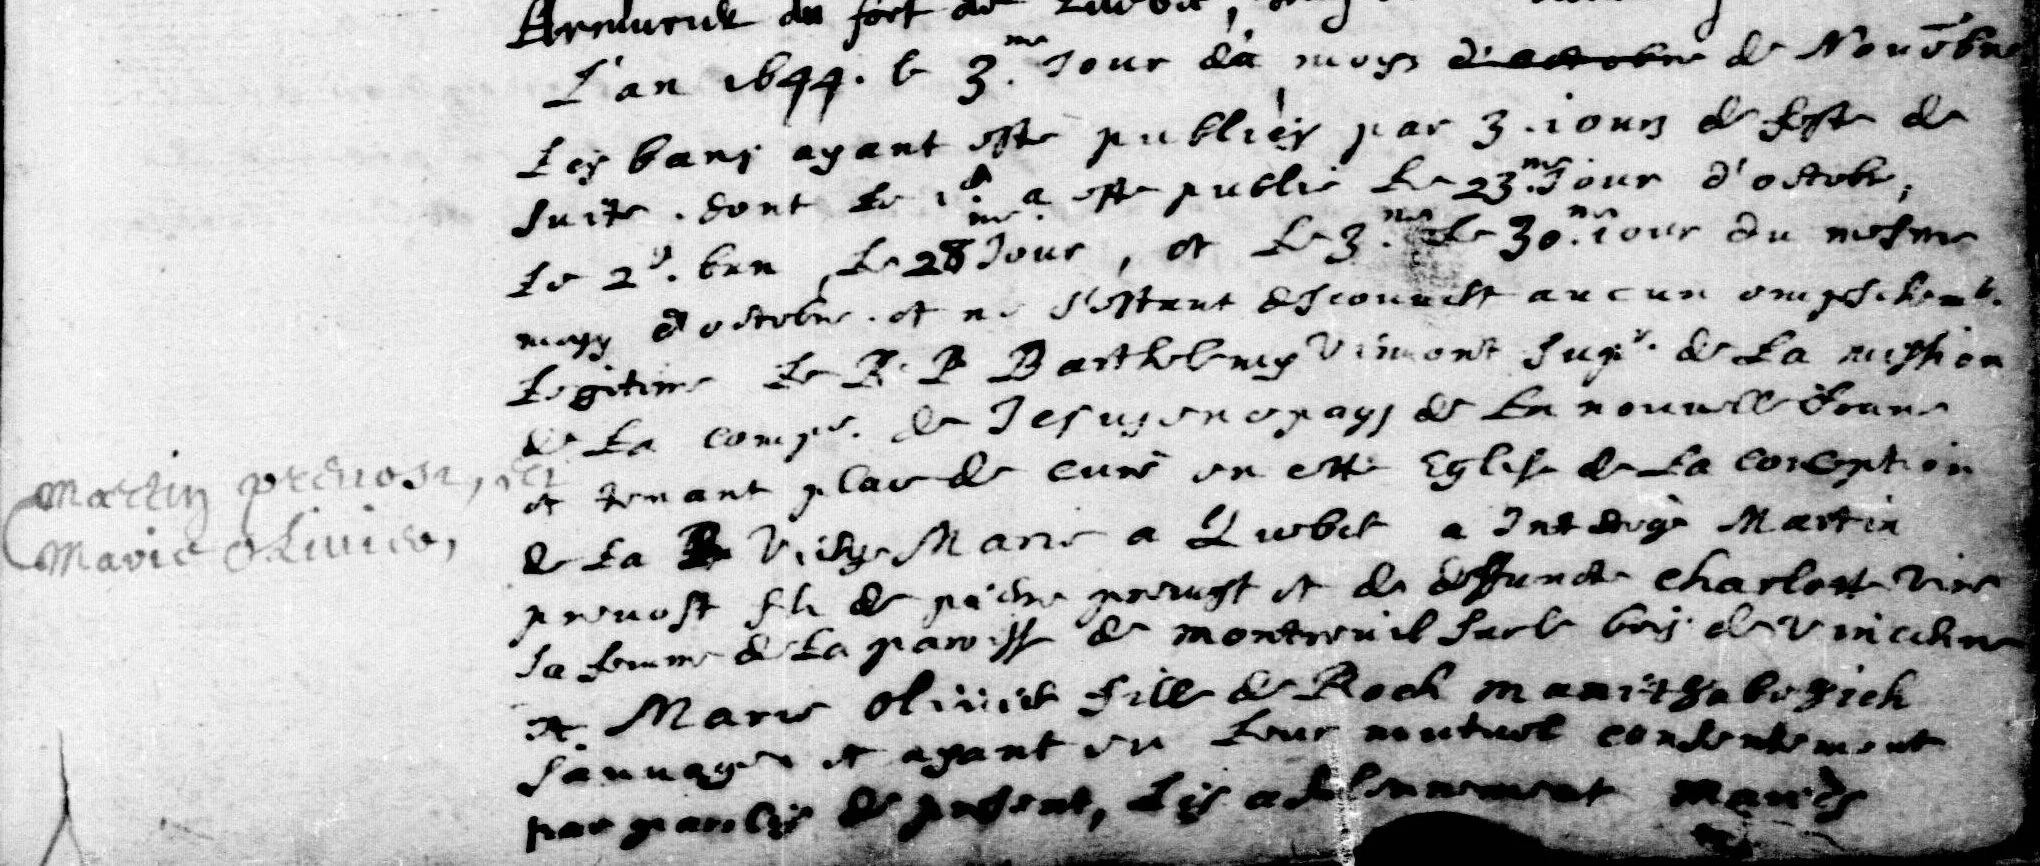 Armurier du fort de Quebec,
L'an 1644. le 3.me Jour du moys d'octobre de Nouēbre
Les bans ayant este publiés par 3. iours de feste de
suite. dont le 1er a este publié le 23.me Jour d'octobre,
le 2d. ban, le 28me Jour, et le 3.me le 30.me iour du mesme
moys d'octobre. et ne s'estant descouuert aucun empeschemt.
legitime le R. P Barthelemy Vimont supr. de la mission
de la compe. de Jesus en ce pays de la nouuelle france
et tenant place de curé en cette Eglise de la conception
de la B Vierge Marie a Quebek a Interogé Martin
Martin preuost, et
Marie oLiuier,
preuost fils de pierre preuost et de deffuncte charlotte Vien
sa femme de la paroisse de montreuil sur le bois de vincene
et Marie oliuier fille de Roch manit8abe8ich
sauuage et ayant eu leur mutuel consentement
par paroles de present, Les a solennement mariés